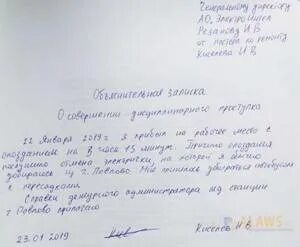 Генеральному директору
АО "ЭлектроИнтел"
Резанову И В
от мастера по ремонту
Киселева И В
Объяснительная записка
О совершении дисциплинарного проступка
22 Января 2019 г я прибыл на рабочее место с
опозданием на 3 часа 15 минут. Причина опоздания
послужило отмена электрички, на которой я обычно
добираюсь из г Ровлово Мне пришлось добираться автобусом
с пересадками.
Справка дежурного администратора ж/д станции
г Ровлово прилагаю
23.01 2019
Киселев И В
LAWS